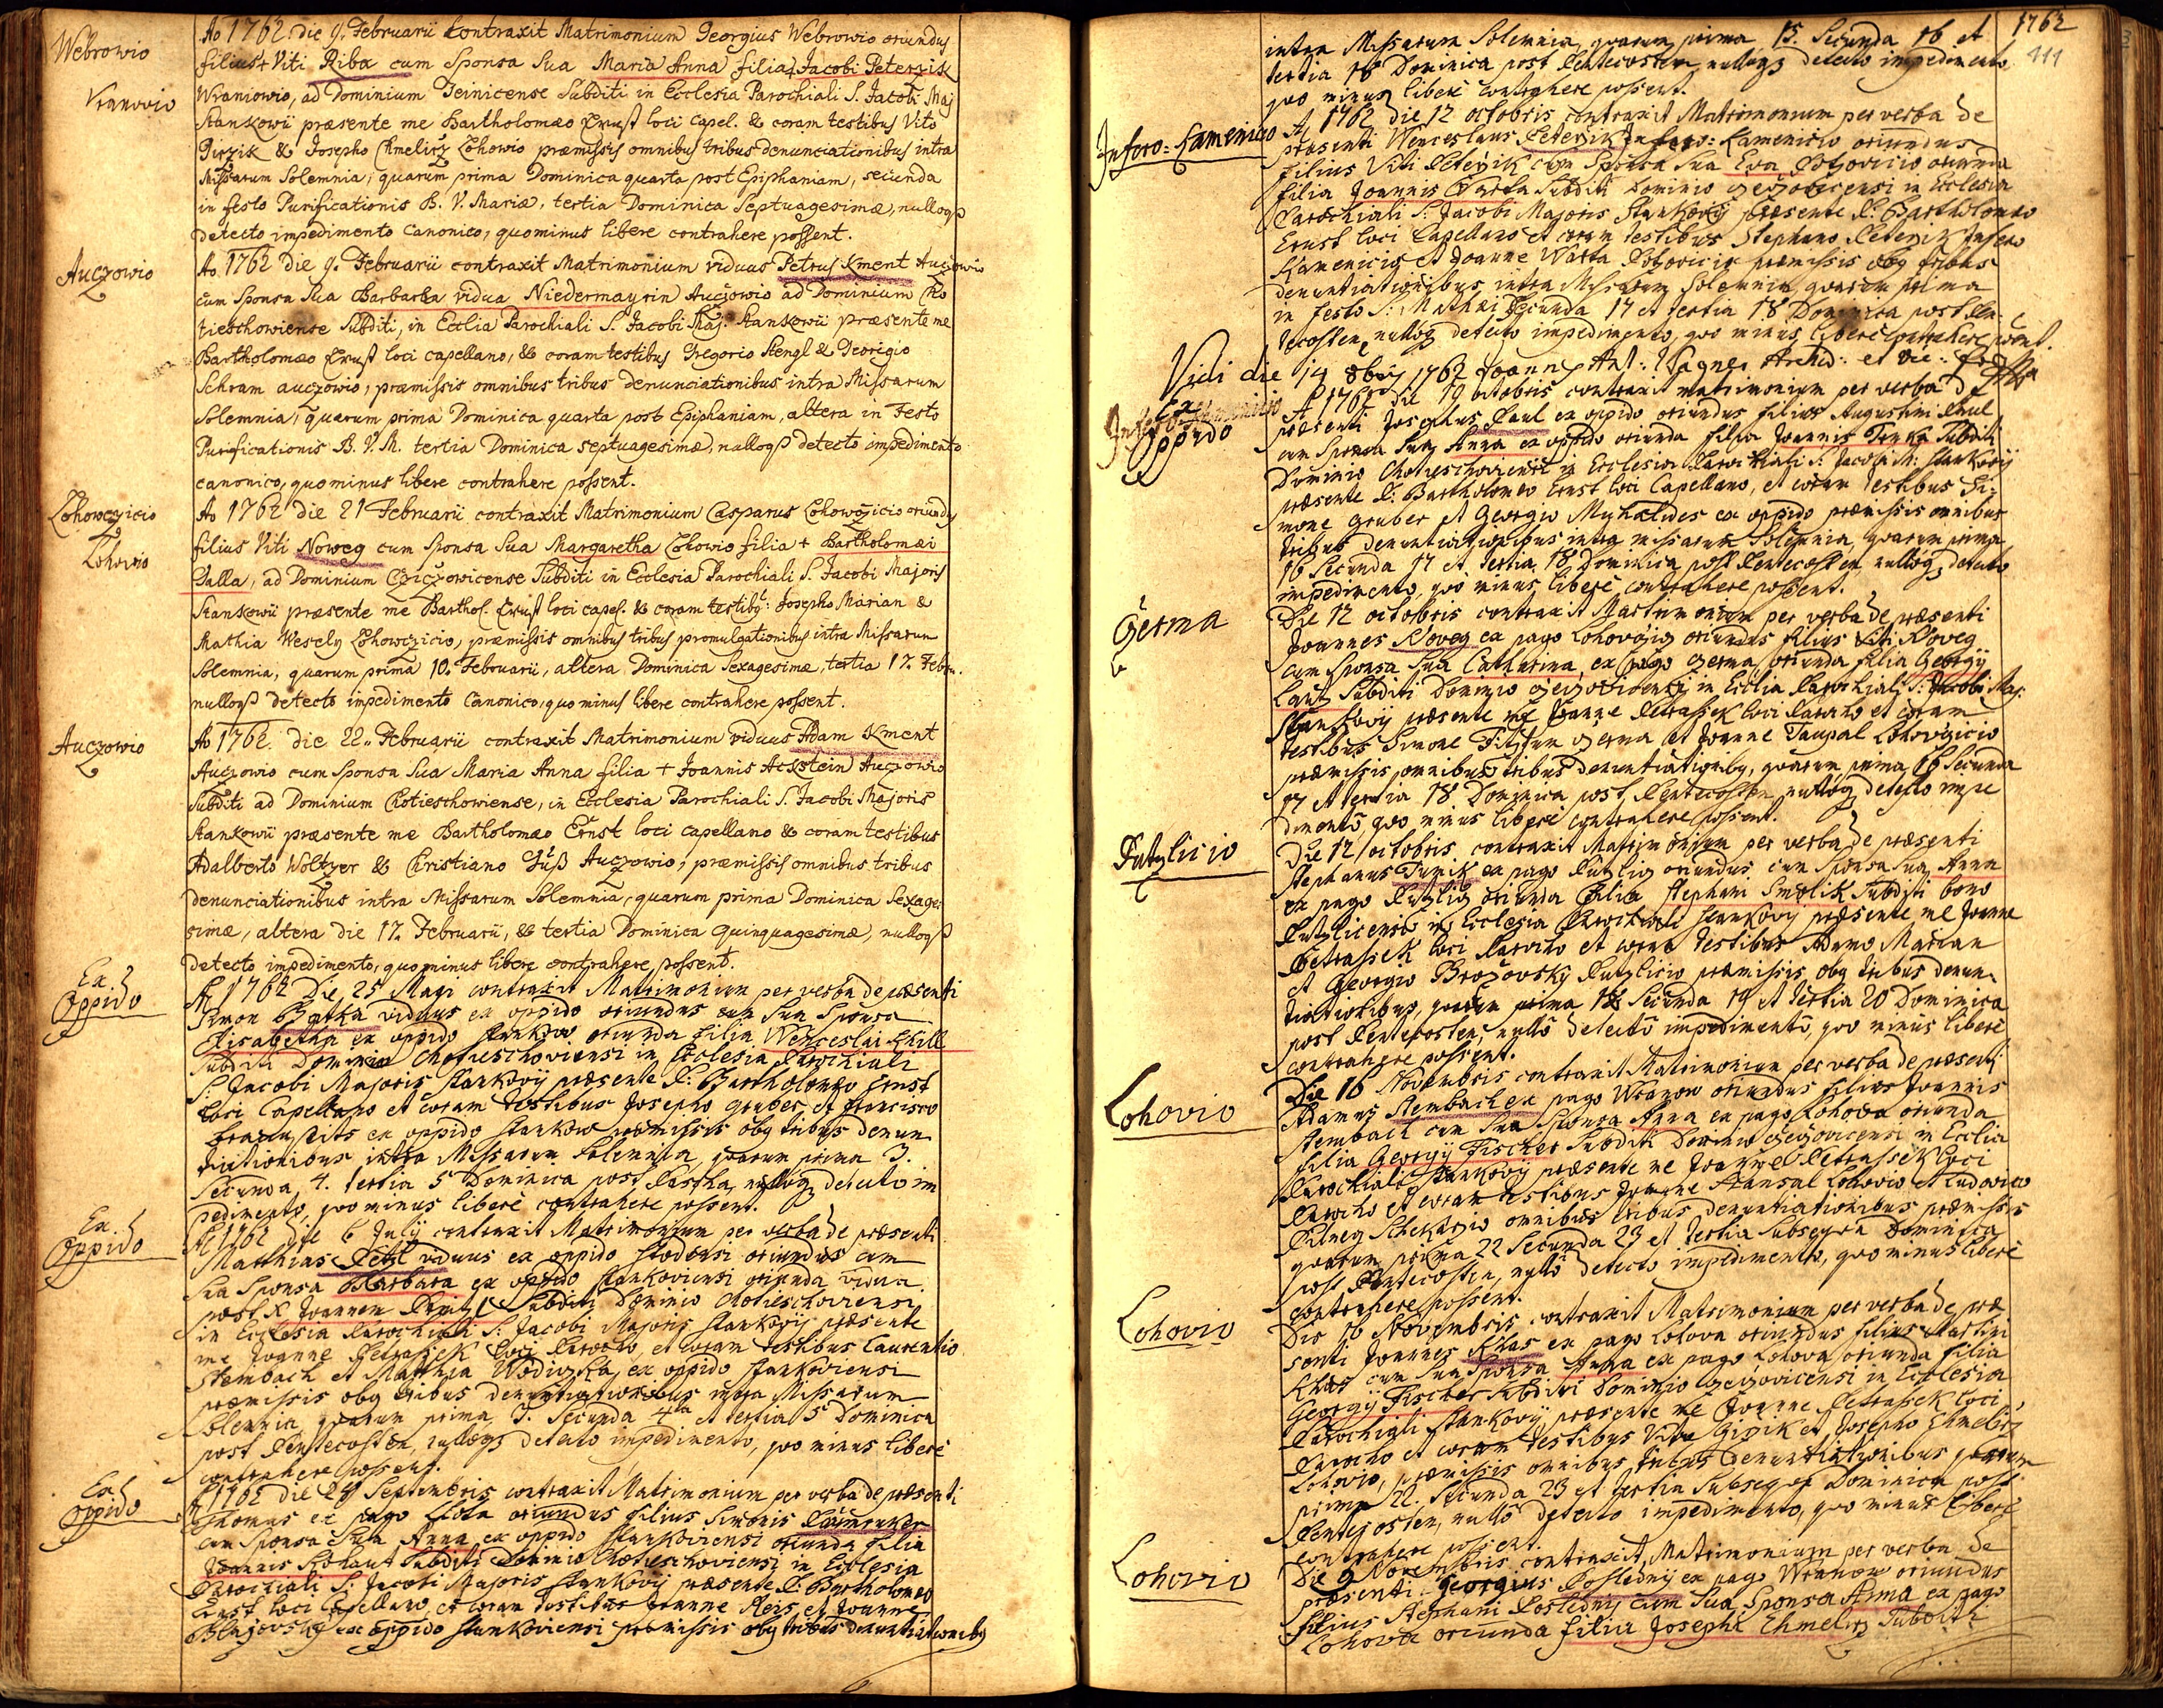 Webrowio
Ao 1762 die 9. Februarii Contraxit Matrimonium Georgius Webrowio oriundus
filius + Viti Riba cum Sponsa Sua Maria Anna filia + Jacobi Peterzik
Wranowio
Wraniowio, ad Dominium Teinicense Subditi in Ecclesia Parochiali S. Jacobi Maj
Stankowii præsente me Bartholomæo Ernst loci Capel. & coram testibus Vito
Girzik & Josepho Chmelirz Lohowio præmissis omnibus tribus denunciationibus intra
Missarum Solemnia, quarum prima Dominica quarta post Epiphaniam, secunda
in festo Purificationis B. V. Mariæ, tertia Dominica Septuagesimæ, nulloqꝫ
detecto impedimento Canonico, quominus libere contrahere possent.
Auczowio
Ao 1762 die 9. Februarii contraxit Matrimonium viduus Petrus Kment Auczowio
cum Sponsa Sua Barbara vidua Niedermayrin Auczowio ad Dominium Cho
tieschowiense Subditi, in Ecclia Parochiali S. Jacobi Maj. Stankowii præsente me
Bartholomæo Ernst loci capellano, & coram testibus Gregorio Stengl & Georigio
Schram auczowio, præmissis omnibus tribus denunciationibus intra Missarum
Solemnia, quarum prima Dominica quarta post Epiphaniam, altera in Festo
Purificationis B. V. M. tertia Dominica septuagesimæ, nulloqꝫ detecto impedimento
canonico, quominus libere contrahere possent.
Lohowczicio
Ao 1762 die 21 Februarii contraxit Matrimonium Casparus Lohowczicio oriundus
Lohowio
filius Viti Noweg cum Sponsa Sua Margaretha Lohowio filia + Bartholomæi
Dalla, ad Dominium Czeczowicense Subditi in Ecclesia Parochiali S. Jacobi Majoris
Stankowii præsente me Barthol. Ernst loci capel. & coram testibus: Josepho Marian &
Mathia Wesely Lohowczicio, præmissis omnibus tribus promulgationibus intra Missarum
Solemnia, quarum prima 10. Februarii, altera Dominica Sexagesimæ, tertia 17. Febru.
nulloqꝫ detecto impedimento Canonico, quominus libere contrahere possent.
Auczowio
Ao 1762. die 22. Februarii contraxit Matrimonium viduus Adam Kment
Auczowio cum Sponsa Sua Maria Anna filia + Joannis Ackstein Auczowio
Subditi ad Dominium Chotieschowiense, in Ecclesia Parochiali S. Jacobi Majoris
Stankowii præsente me Bartholomæo Ernst loci capellano & coram testibus
Adalberto Woltzer & Christiano Jüß Auczowio, præmissis omnibus tribus
denunciationibus intra Missarum Solemnia, quarum prima Dominica Sexage:
simæ, altera die 17. Februarii, & tertia Dominica Quinquagesimæ, nulloqꝫ
detecto impedimento, quominus libere contrahere possent.
Ex
Oppido
A 1762 Die 25 Maii contraxit Matrimonium per verba de præsenti
Simon Batka viduus ex oppido oriundus cum Sua Sponsa
Elisabetha ex oppido Stankow oriunda filia Wenceslai Schill
Subditi Dominio Chotieschoviensi in Ecclesia Parochiali
S: Jacobi Majoris Stankovij præsente P: Bartholomæo Ernst
loci Capellano et coram testibus Josepho Gruber et Francisco
ex oppido Stankow præmissis obg tribus denun
tiationibus intra Missarum Solemnia, quarum prima 3.
Secunda 4. tertia 5 Dominica post Pascha, nulloqꝫ detecto im
pedimento, quo minus liberè contrahere possent.
Ex
Oppido
A 1762 die 6 Julij contraxit Matrimonium per verba de præsenti
Matthias Petzl viduus ex oppido oriundus cum
Sua Sponsa Barbara ex oppido Stankoviensi oriunda vidua
post + Joannem Subditi Dominio Chotieschoviensi
in Ecclesia Parochiali S: Jacobi Majoris Stankovij præsente
me Joanne Petrassek loci Parocho, et coram testibus Laurentio
Stembach et Matthia Wodiczka ex oppido Stankoviensi
præmissis obg tribus denuntiationibus intra Missarum
Solemnia, quarum prima 3. Secunda 4ta et tertia 5 Dominica
post Pentecosten, nulloqꝫ detecto impedimento, quo minus liberè
contrahere possent.
Ex
Oppido
A 1762 die 28 Septembris contraxit Matrimonium per verba de præsenti
Thomas ex pago oriundus filius Simonis
cum Sponsa Sua Anna ex oppido Stankoviensi oriunda filia
Joannis Subditi Dominio Chotieschoviensi in Ecclesia
Parochiali S: Jacobi Majoris Stankovij præsente P: Bartholomæo
Ernst loci Capellano, et coram testibus Joanne Reis et Joanne
Blazovsky ex oppido Stankoviensi præmissis obg tribus denuntiationibꝫ
1762
111
intra Missarum Solemnia, quarum prima 15. Secunda 16 et
tertia 18 Dominica post Pentecosten, nulloqꝫ detecto impedimento
quo minus liberè contrahere possent.
Infero: Kamenicio
A 1762 die 12 octobris contraxit Matrimonium per verba de
præsenti Wenceslaus Peterzik Infero: Kamenicio oriundus
filius Viti Peterzik cum Sponsa Sua Eva oriunda
filia Joannis Warta Subditi Dominio in Ecclesia
Parochiali S: Jacobi Majoris Stankovij præsente P: Bartholomæo
Ernst loci Capellano et coram testibus Stephano Peterzik Infero
Kamenicio et Joanne Warta præmissis obg tribus
denuntiationibus intra Missarum Solemnia quarum prima
in festo S: Mathæi Secunda 17 et tertia 18 Dominica post Pen
tecosten, nulloqꝫ detecto impedimento, quo minus liberè contrahere possent.
Vidi die 14 8bris 1762 Joannes Ant: Wagner Archid: et Vic:
Ex
Oppido
A 1762 die 19 octobris contraxit matrimonium per verba de
præsenti Josephus Paul ex oppido oriundus filius Augustini Paul
cum Sponsa Sua Anna ex oppido oriunda filia Joannis Subditi
Dominio Chotieschoviensi in Ecclesia Parochiali S: Jacobi M: Stankovij
præsente P: Bartholomæo Ernst loci Capellano, et coram testibus Si:
mone Gruber et Georgio Myhalides ex oppido præmissis omnibus
tribus denuntiationibus intra missarum Solemnia, quarum prima
16 Secunda 17 et tertia 18 Dominica post Pentecosten, nulloqꝫ detecto
impedimento, quo minus liberè contrahere possent.
Czerma
Die 12 octobris contraxit Matrimonium per verba de præsenti
Joannes Noveg ex pago Lohovczicz oriundus filius Viti Noveg
cum Sponsa Sua Catharina ex pago Czerma oriunda filia Georgij
Lang Subditi Dominio in Ecclia Parochiali S: Jacobi Maj:
Stankovij præsente me Joanne Petrassek loci Parocho et coram
testibus Simone Czerma et Joanne Taupal Lohovczicio
præmissis omnibus tribus denuntiationibꝫ, quarum prima 16 Secunda
17 et tertia 18 Dominica post Pentecosten, nulloqꝫ detecto impe
dimento, quo minus liberè contrahere possent.
Putzlicio
Die 12 octobris contraxit Matrimonium per verba de præsenti
Stephanus Tunik ex pago Putzlicz oriundus cum Sponsa Sua Anna
ex pago Putzlicz oriunda filia Stephani Smolik Subditi bono
Putzlicensi in Ecclesia Parochiali Stankovij præsente me Joanne
Petrassek loci Parocho et coram testibus Adamo Marian
et Georgio Brožovsky Putzlicio præmissis obg tribus denun
tiationibus, quarum prima 18 Secunda 19 et tertia 20 Dominica
post Pentecosten, nullô detectô impedimentô, quo minus liberè
contrahere possent.
Lohovio
Die 16 Novembris contraxit Matrimonium per verba de præsenti
Adamus Stembach ex pago Wranow oriundus filius Joannis
Stembach cum Sua Sponsa Anna ex pago Lohova oriunda
filia Georgij Fischer Subditi Dominio in Ecclia
Parochiali Stankovij præsente me Joanne Petrassek loci
Parocho et coram testibus Joanne Lohovio et Ludovico
omnibus tribus denuntiationibus præmissis
quarum prima 22 Secunda 23 et tertia Subsequa Dominica
post Pentecosten, nullô detecto impedimento, quo minus liberè
contrahere possent.
Lohovio
Die 16 Novembris contraxit Matrimonium per verba de præ
senti Joannes Khas ex pago Lohova oriundus filius Martini
Khas cum Sua Sponsa Anna ex pago Lohova oriunda filia
Georgij Fischer Subditi Dominio in Ecclesia
Parochiali Stankovij præsente me Joanne Petrassek loci
Parocho et coram testibus Vito Girzik et Josepho Chmelirz
Lohovio, præmissis omnibus tribus denuntiationibus quarum
prima 22. Secunda 23 et tertia Subsequa Dominica post
Pentecosten, nullô detecto impedimento, quo minus liberè
contrahere possent.
Lohovio
Die 9 Novembris contraxit Matrimonium per verba de
præsenti Georgius Poslednij ex pago Wranow oriundus
filius Stephani Poslednij cum Sua Sponsa Anna ex pago
Lohova oriunda filia Josephi Chmelirz Subditi